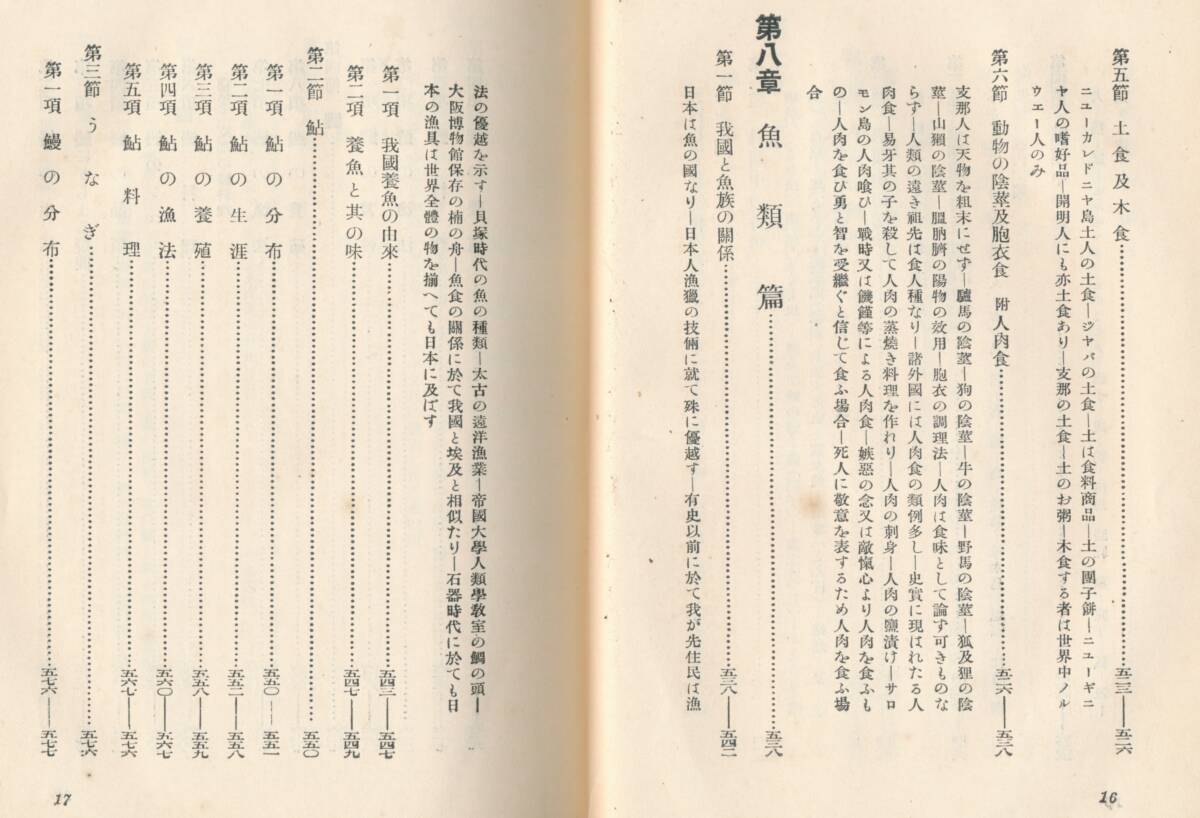 第五節 土食及木食……五二三——五二六
ニユーカレドニヤ島土人の土食—ジヤバの土食—土は食料商品—土の團子餅—ニユーギニ
ヤ人の嗜好品—開明人にも亦土食あり—支那の土食—土のお粥—木食する者は世界中ノル
ウエー人のみ
第六節 動物の陰莖及胞衣食 附人肉食……五二六——五三八
支那人は天物を粗末にせず—驢馬の陰莖—狗の陰莖—牛の陰莖—野馬の陰莖—狐及狸の陰
莖—山獺の陰莖—膃肭臍の陽物の效用—胞衣の調理法—人肉は食味として論ず可きものな
らず—人類の遠き祖先は食人種なり—諸外國には人肉食の類例多し—史實に現はれたる人
肉食—易牙其の子を殺して人肉の蒸燒き料理を作れり—人肉の刺身—人肉の鹽漬け—サロ
モン島の人肉喰ひ—戰時又は饑饉等による人肉食—嫉惡の念又は敵愾心より人肉を食ふも
の—人肉を食ひ勇と智を受繼ぐと信じて食ふ場合—死人に敬意を表するため人肉を食ふ場
合
第八章 魚類篇……五三八
第一節 我國と魚族の關係……五三八——五四二
日本は魚の國なり—日本人漁獵の技倆に就て殊に優越す—有史以前に於て我が先住民は漁
16
法の優越を示す—貝塚時代の魚の種類—太古の遠洋漁業—帝國大學人類學敎室の鯛の頭—
大阪博物館保存の楠の舟—魚食の關係に於て我國と埃及と相似たり—石器時代に於ても日
本の漁具は世界全體の物を揃へても日本に及ばず
第一項 我國養魚の由來……五四三——五四七
第二項 養魚と其の味……五四七——五四九
第二節 鮎……五五〇
第一項 鮎の分布……五五〇——五五一
第二項 鮎の生涯……五五二——五五八
第三項 鮎の養殖……五五八——五五九
第四項 鮎の漁法……五六〇——五六七
第五項 鮎料理……五六七——五七六
第三節 うなぎ……五七六
第一項 鰻の分布……五七六——五七七
17